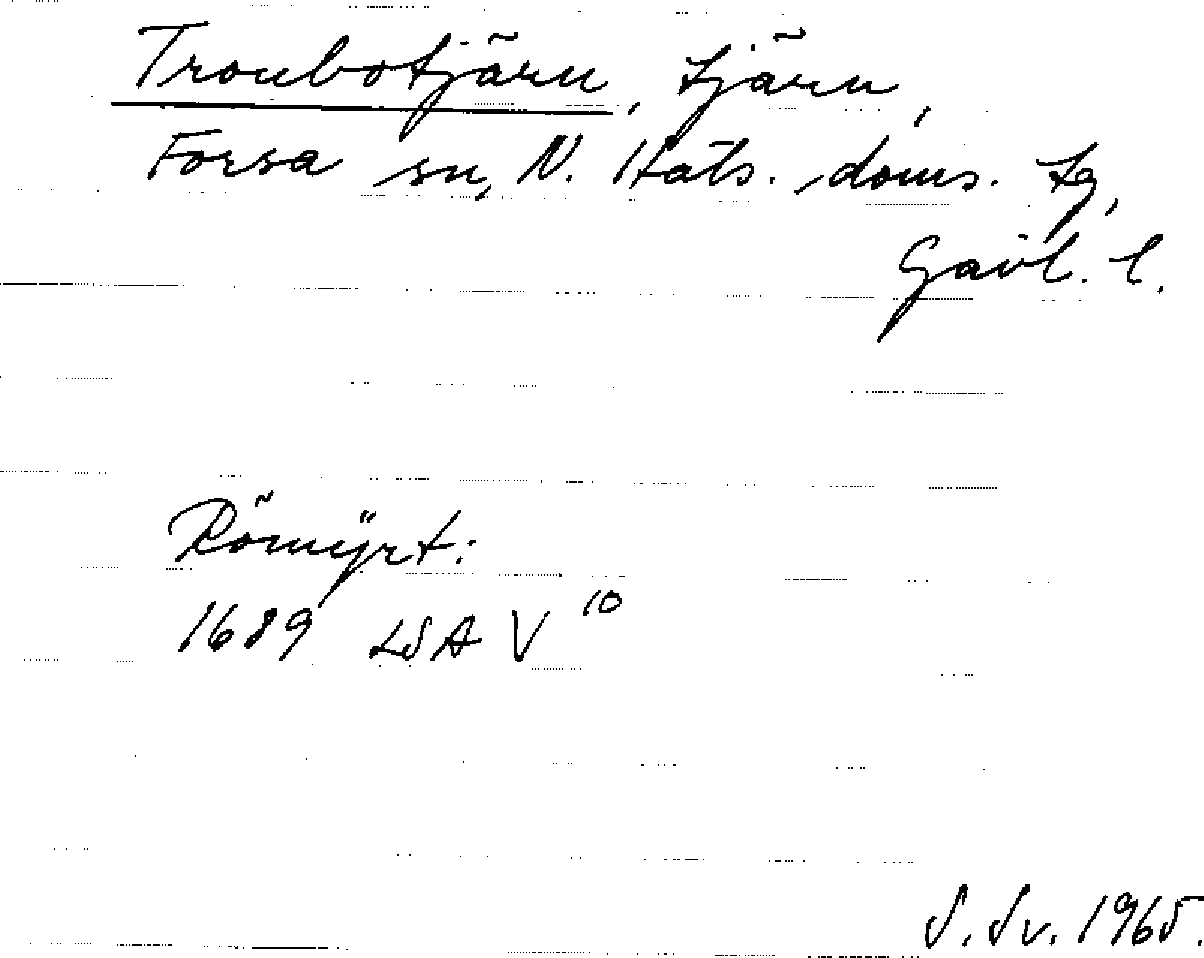 Tronbotjärn, tjärn,
Forsa sn, N. Häls. doms. tg,
Gävl. l.
Römyrt:
1689 LSA V 10
S. Sv. 1965.